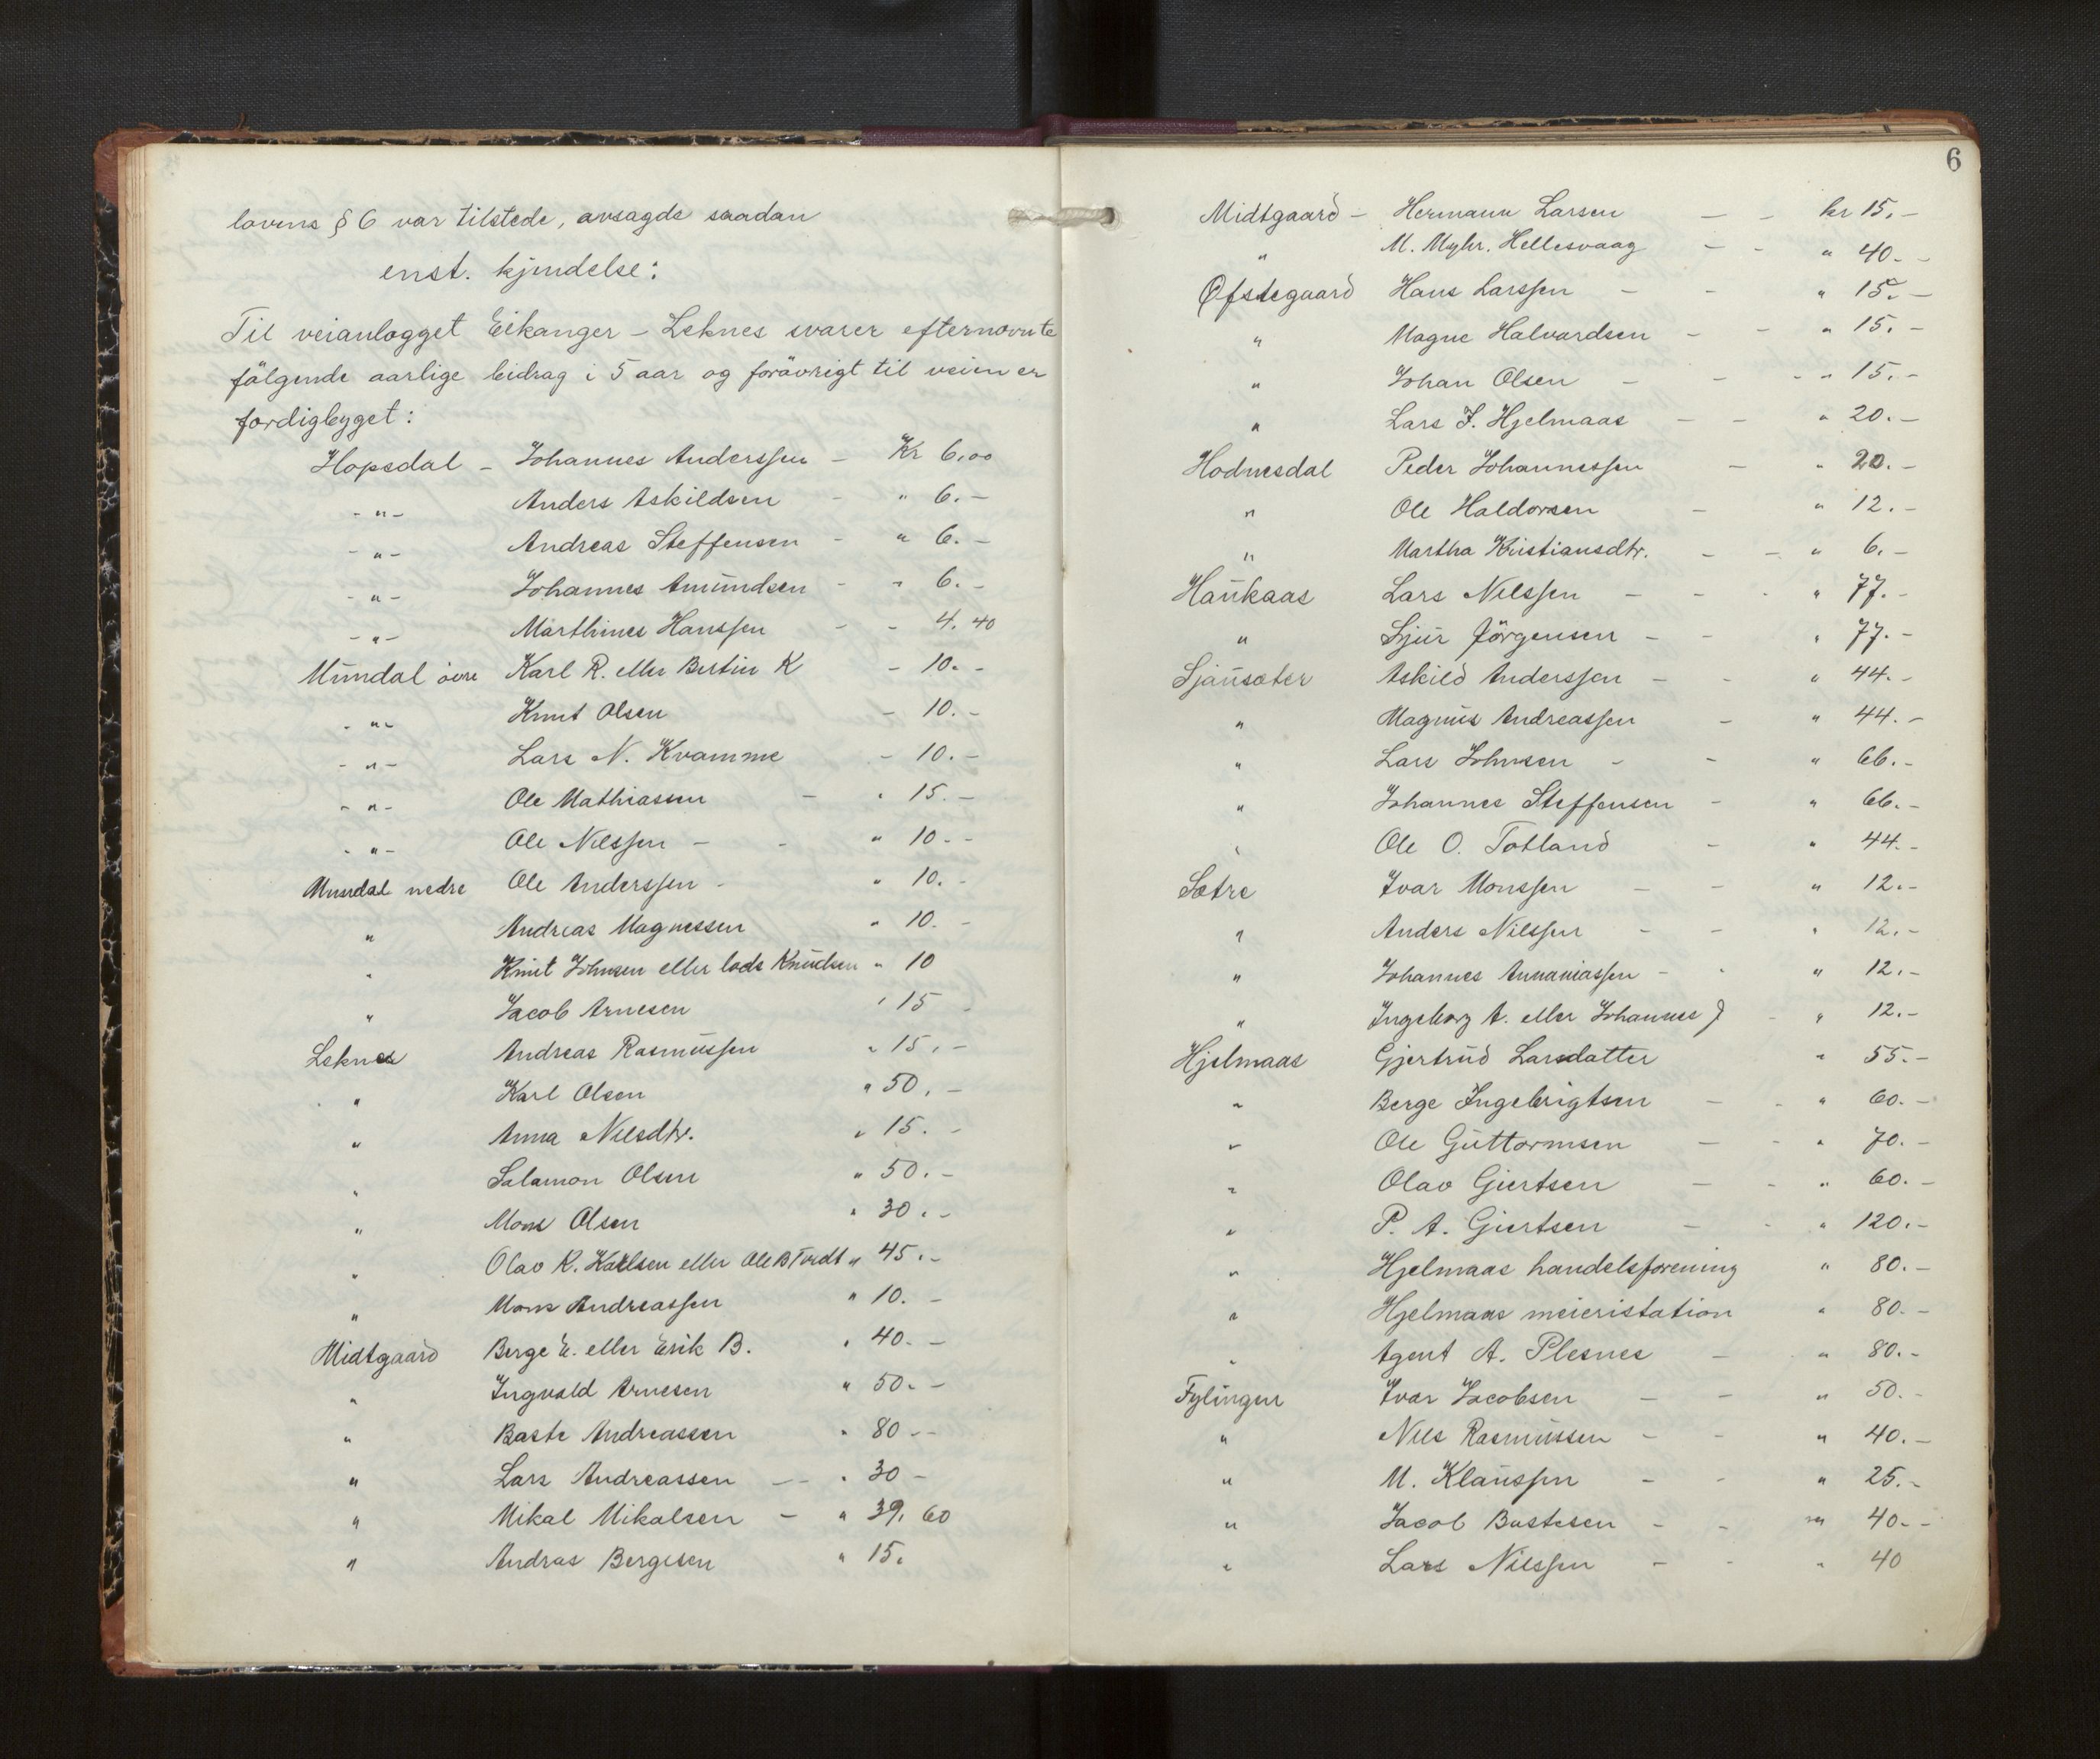 lovens § 6 var tilstede, avsagde saadan
enst. kjendelse:
Til veianlægget Eikanger – Leknes svarer efternævnte
følgende aarlige bidrag i 5 aar og forøvrigt til veien er
færdigbygget:
Hopsdal – Johannes Anderssen – Kr 6,00
- " - Anders Askildsen - " 6. –
- " - Andreas Steffensen - " 6. –
- " - Johannes Amundsen - " 6. –
- " - Marthines Hanssen - - 4.40
Mundal övre Karl R. eller Bertin K - 10. -
- " - Knut Olsen - 10. -
- " - Lars N. Kvamme - 10. -
- " - Ole Mathiassen – " 15. –
- " - Ole Nilssen – - " 10 - -
Mundal nedre Ole Anderssen - " 10. -
" Andreas Magnessen " 10. -
" Knut Johnsen eller lods Knudsen " 10
" Jacob Arnesen " 15 -
Leknes Andreas Rasmussen " 15. –
" Karl Olsen " 50. –
" Anna Nilsdtr. " 15. -
" Salamon Olsen " 50. –
" Mons Olsen " 30. –
" Olav K. Karlsen eller Ole B Tvedt " 45. –
" Mons Andreassen " 10. –
Midtgaard Berge E. eller Erik B. " 40. –
" Ingvald Arnesen " 50. –
" Baste Andreassen " 80 --
" Lars Andreassen –– " 30 –
" Mikal Mikalsen – " 39, 60
" Andras Bergesen " 15.
6
Midtgaard – Hermann Larsen – – kr 15. –
" M. Myhr. Hellesvaag – - " 40. -
Øfstegaard Hans Larssen – - " 15. –
" Magne Halvardsen – - " 15. –
" Johan Olsen – - - " 15. –
" Lars J. Hjelmaas – – " 20. –
Hodnesdal Peder Johannessen – " 20. –
" Ole Haldorsen – " 12. –
" Martha Kristiansdtr. – – " 6. –
Haukaas Lars Nilssen – - - " 77. –
" Sjur Jörgensen – – " 77. –
Sjausæter Askild Anderssen – - " 44. –
" Magnus Andreassen – " 44. –
" Lars Johnsen – - " 66. –
" Johannes Steffensen – " 66. –
" Ole O. Totland – " 44. –
Sætre Ivar Monssen – – " 12. –
" Anders Nilssen – – " 12. –
" Johannes Annaniassen – - " 12. –
" Ingeborg A. eller Johannes J - " 12. –
Hjelmaas Gjertrud Larsdatter " 55. –
" Berge Ingebrigtsen – - " 60. –
" Ole Guttormsen – - " 70. –
" Olav Gjertsen – - " 60. –
" P. A. Gjertsen – - " 120. –
" Hjelmaas handelsforening " 80. –
" Hjelmaas meieristation " 80. –
" Agent A. Plesnes – - " 80. –
Fylingen Ivar Jacobsen – – " 50. –
" Nils Rasmussen – - " 40. –
" M. Klaussen – - " 25. –
" Jacob Bastesen – - " 40. –
" Lars Nilssen – - " 40